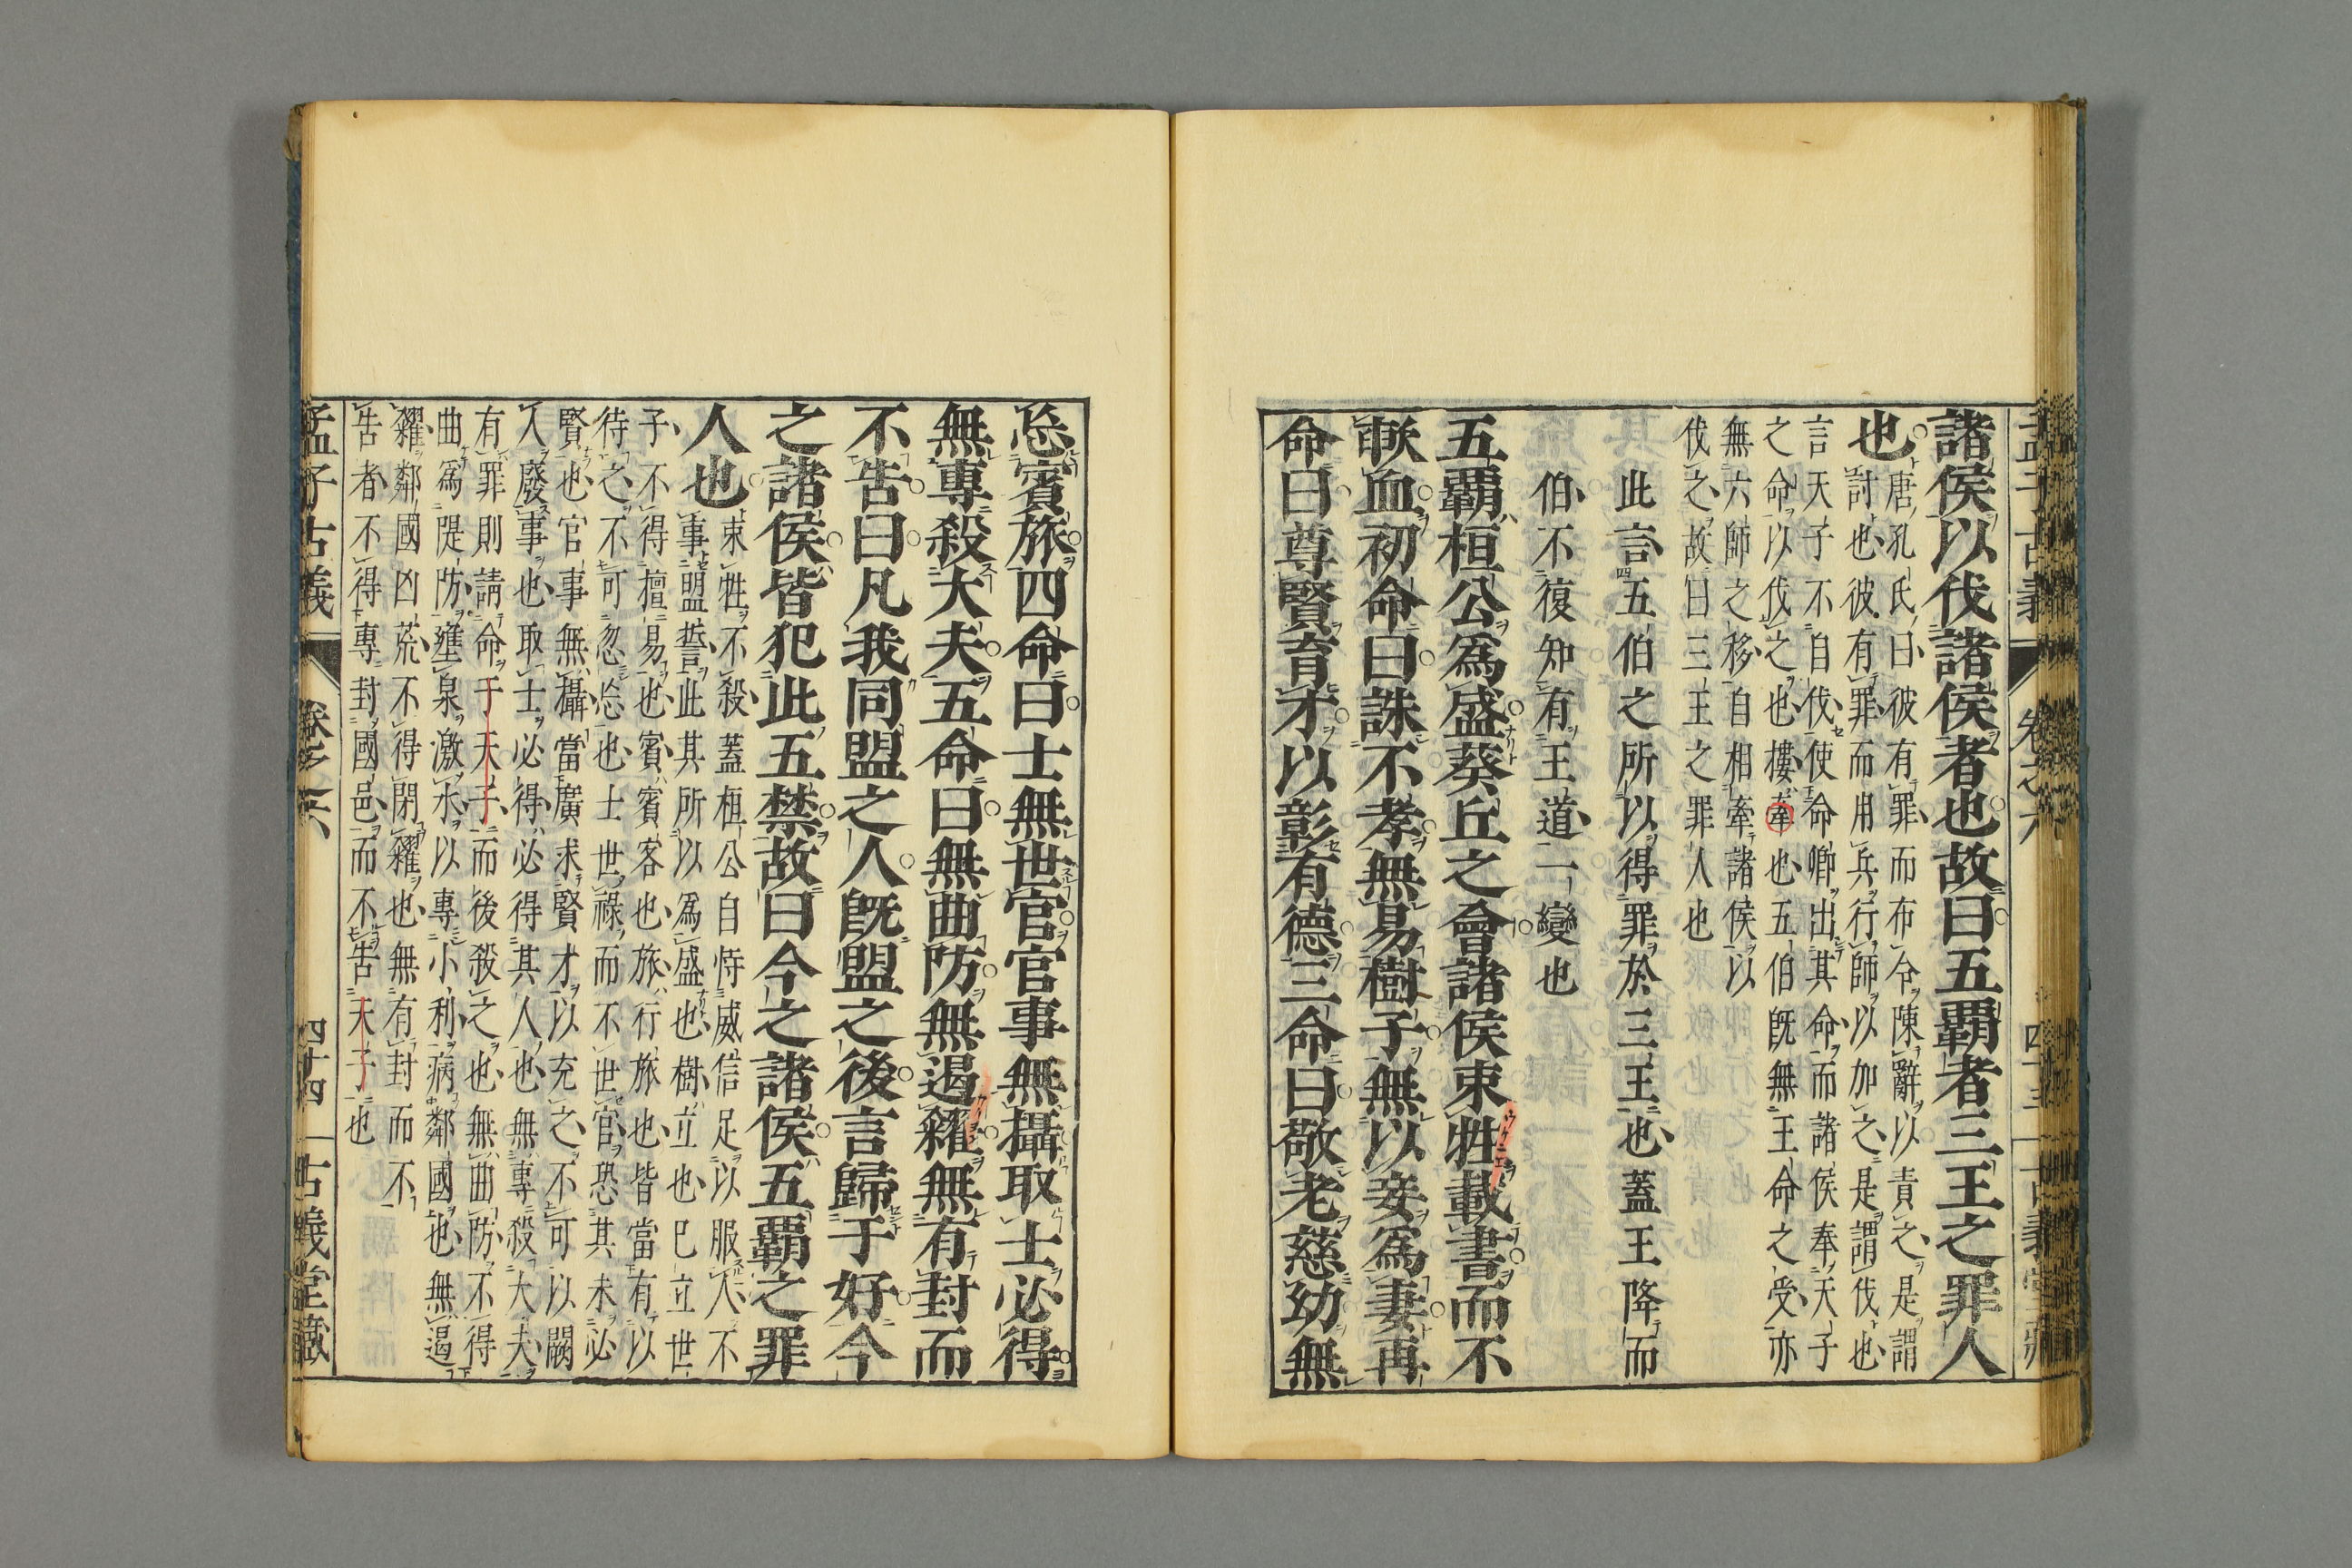 諸侯以伐諸侯者也故曰五霸者三王之罪人
也
唐孔氏曰彼有罪而布令陳辭以責之是謂
討也彼有罪而用兵行師以加之是謂伐也
言天子不自伐使命卿出其命而諸侯奉天子
之命以伐之也摟牽也五伯既無王命之受亦
無六師之移自相牽諸侯以
伐之故曰三王之罪人也
此言五伯之所以得罪於三王也蓋王降而
伯不復知有王道一變也
五霸桓公爲盛葵丘之會諸侯束牲載書而不
歃血初命曰誅不孝無易樹子無以妾爲妻再
命曰尊賢育才以彰有德三命曰敬老慈幼無
忘賓旅四命曰士無世官官事無攝取士必得
無專殺大夫五命曰無曲防無遏糴無有封而
不告曰凡我同盟之人既盟之後言歸于好今
之諸侯皆犯此五禁故曰今之諸侯五霸之罪
人也
束牲不殺蓋桓公自恃威信足以服人不
事盟誓此其所以爲盛也樹立也已立世
子不得擅易也賓賓客也旅行旅也皆當有以
待之不可忽忘也士世祿而不世官恐其未必
賢也官事無攝當廣求賢才以充之不可以闕
人廢事也取士必得必得其人也無專殺大夫
有罪則請命于天子而後殺之也無曲防不得
曲爲隄防壅泉激水以專小利病鄰國也無遏
糴鄰國凶荒不得閉糴也無有封而不
告者不得專封國邑而不告天子也
孟子古義 卷之六 四十四 古義堂藏